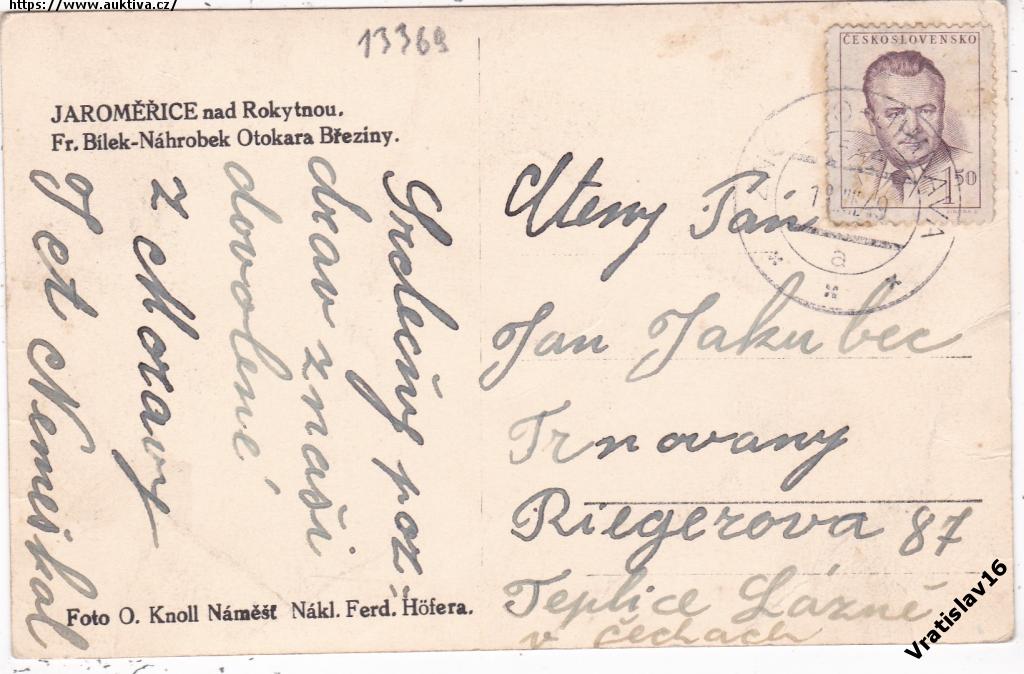 https://www.auktiva.cz/
13369
JAROMĚŘICE nad Rokytnou.
Fr. Bílek-Náhrobek Otokara Březiny.
Srdečný poz-
drav z naši
dovolené
z Moravy
Foto O. Knoll Náměšť Nákl. Ferd. Höfera.
ČESKOSLOVENSKO
1 50
a
Ctěný Pán
Jan Jakubec
Trnovany
Riegerova 87
Teplice Lázně
v čechach
Vratislav16